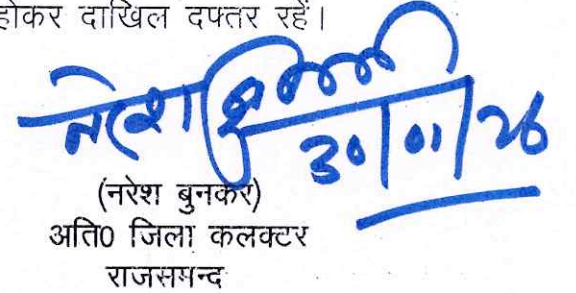 होकर दाखिल दफ्तर रहें।
नरेश
30/01/26
(नरेश बुनकर)
अति0 जिला कलक्टर
राजसमन्द